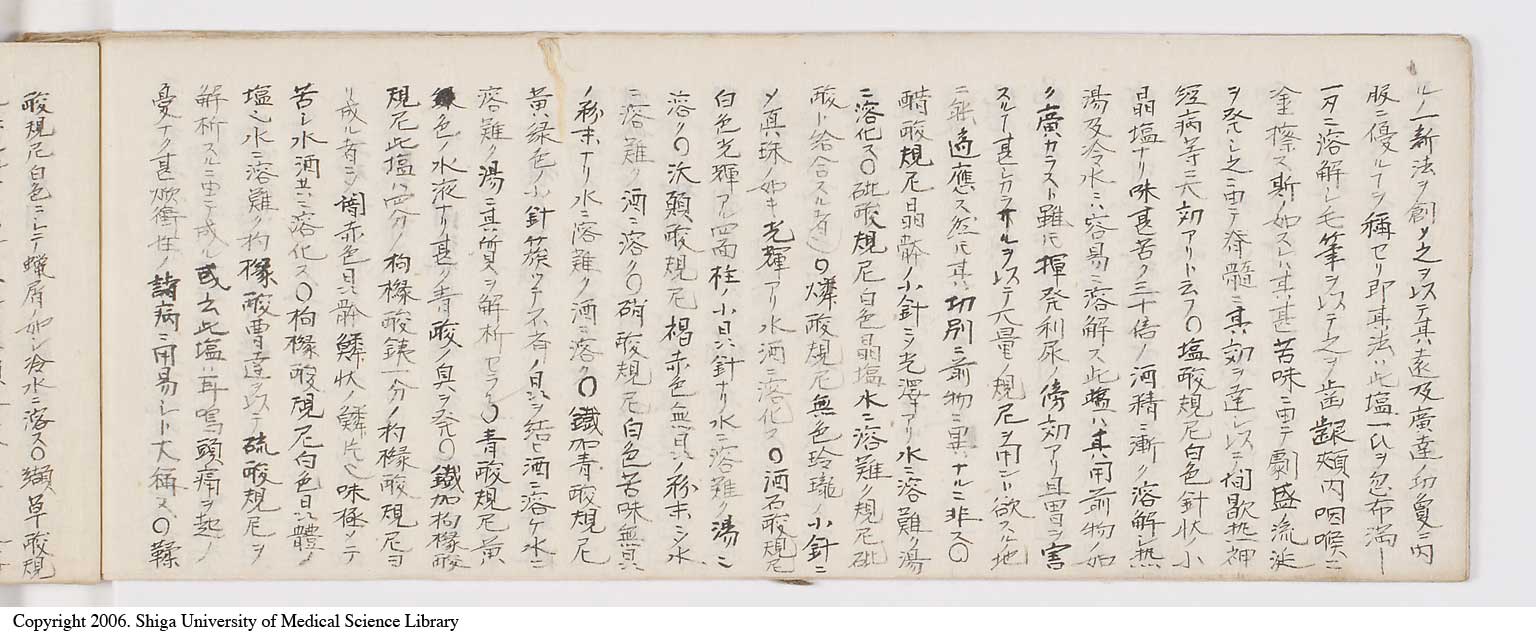 ルノ一新法ヲ創メ之ヲ以テ其遠及廣達ノ功夐ニ内
服ニ優ルヿヲ稱セリ即其法ハ此塩一ヒヲ忽布満一
刄ニ溶解シ毛筆ヲ以テ之ヲ歯齦頬内咽喉ニ
塗擦ス斯ノ如スレハ其甚苦味ニ由テ劇盛流涎
ヲ発シ之ニ由テ脊髄ニ其効ヲ達シ以テ間歇熱神
經病等ニ大効アリト云フ〇塩酸規尼白色針状ノ小
晶塩ナリ味甚苦ク三十倍ノ酒精ニ漸ク溶解シ熱
湯及冷水ニハ容易ニ溶解ス此塩ハ其用前物ノ如
ク廣カラスト雖モ揮発利尿ノ傍効アリ且胃ヲ害
スルヿ甚シカラサルヲ以テ大量ノ規尼ヲ用ント欲スル地
ニ能適應ス然モ其功別ニ前物ニ異ナルニ非ス〇
醋酸規尼晶骿ノ小針ニシ光澤アリ水ニ溶難ク湯
ニ溶化ス〇砒酸規尼白色晶塩水ニ溶難ク規尼砒
酸ト給合スル者也〇燐酸規尼無色玲瓏ノ小針ニ
メ真珠ノ如キ光輝アリ水酒ニ溶化ス〇酒石酸規尼
白色光輝アル四面柱ノ小晶針ナリ水ニ溶難ク湯ニ
溶ク〇沃顛酸規尼褐赤色無晶ノ粉末ニシ水
ニ溶難ク酒ニ溶ク〇硝酸規尼白色苦味無晶
ノ粉末ナリ水ニ溶難ク酒ニ溶ク〇鐵加青酸規尼
黄緑色ノ小針簇ツテ不斉ノ晶ヲ結ヒ酒ニ溶ケ水ニ
溶難ク湯ニ其質ヲ解析セラル〇青酸規尼黄
緑色ノ水液ナリ甚ク青酸ノ臭ヲ発ス〇鐵加枸櫞酸
規尼此塩ハ四分ノ枸櫞酸銕一分ノ枸櫞酸規尼ヨ
リ成ル者ニシ闇赤色晶骿鱗状ノ鱗片也味極メテ
苦シ水酒共ニ溶化ス〇枸櫞酸規尼白色晶體ノ
塩也水ニ溶難ク枸櫞酸曹達ヲ以テ硫酸規尼ヲ
解析スルニ由テ成ル或云此塩ハ耳鳴頭痛ヲ起ノ
憂ナク甚焮衝性ノ諸病ニ用易シト大稱ス〇鞣
酸規尼白色ニシテ蠟屑ノ如シ冷水ニ溶ス〇纈草酸規